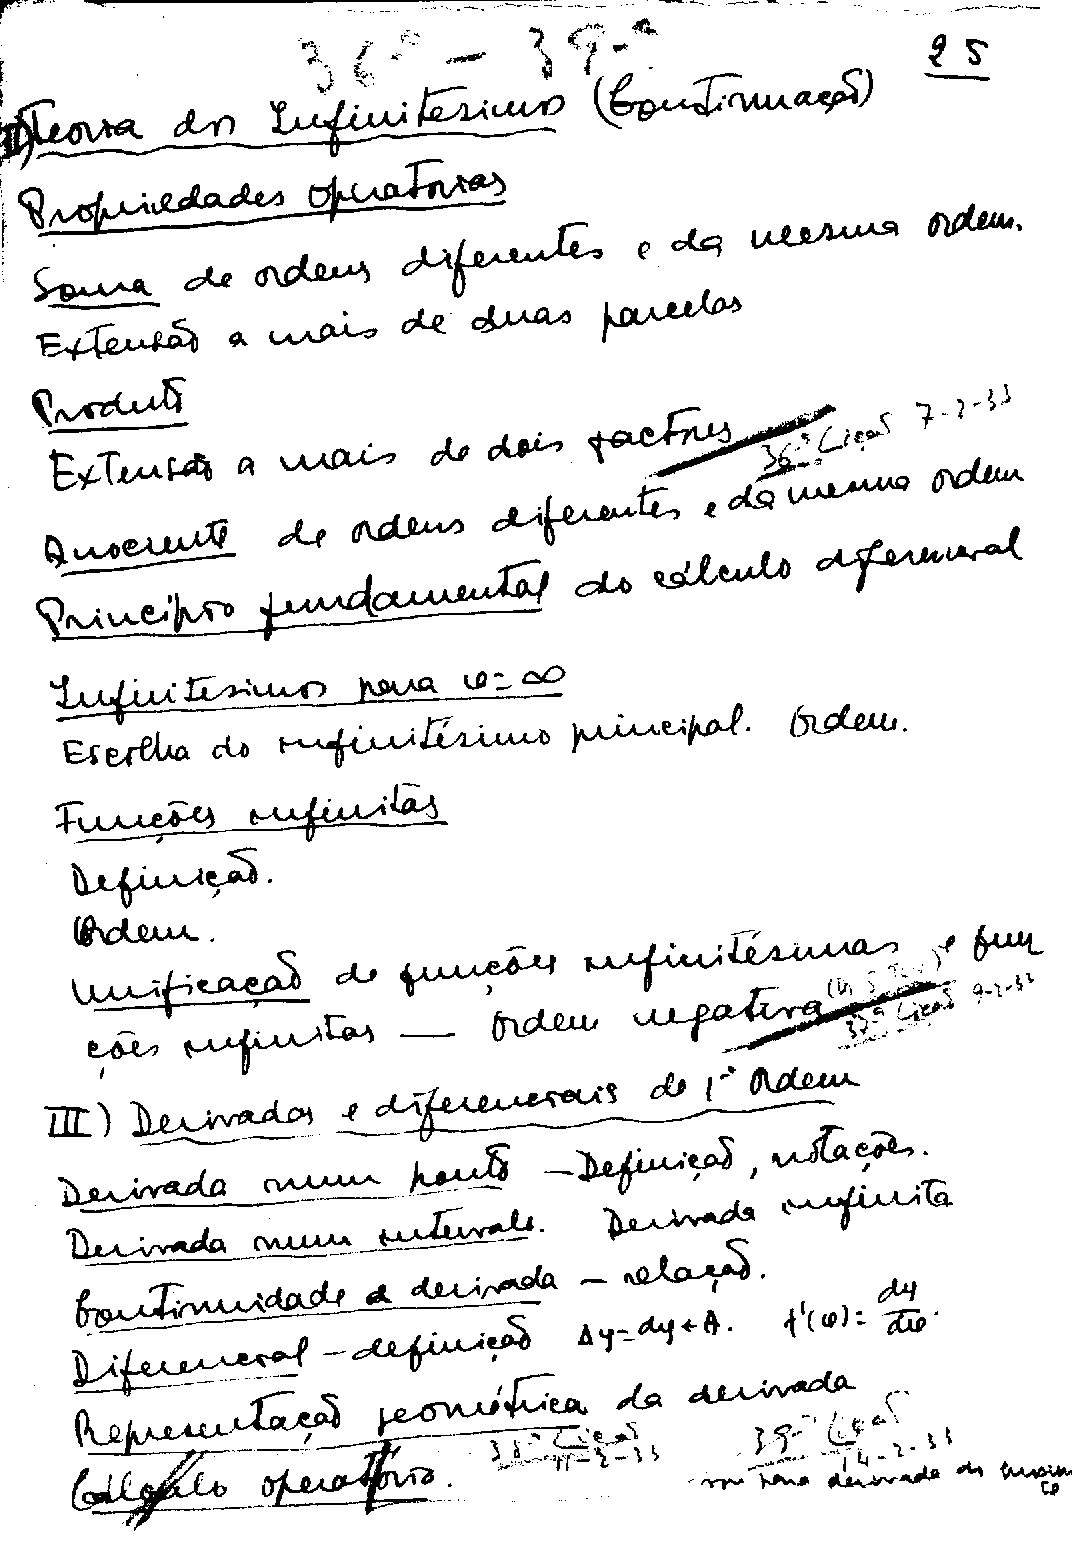 36ª - 39ª
25
II) Teoria dos Infinitésimos (Continuação)
Propriedades operatórias
Soma de ordens diferentes e da mesma ordem.
Extensão a mais de duas parcelas
Produto
Extensão a mais de dois factores
36ª Lição 7-2-33
Quociente de ordens diferentes e da mesma ordem
Princípio fundamental do cálculo diferencial
Infinitésimos para x = ∞
Escolha do infinitésimo principal. Ordem.
Funções infinitas
Definição.
Ordem.
Unificação de funções infinitésimas e fun
ções infinitas — Ordem negativa
37ª Lição 9-2-33
III) Derivadas e diferenciais de 1ª Ordem
Derivada num ponto - Definição, notações.
Derivada num intervalo. Derivada infinita
Continuidade e derivada - relação.
Diferencial - definição Δy=dy+A. f'(x)= dy/dx.
Representação geométrica da derivada
38ª Lição 11-2-33
39ª Lição 14-2-33
Cálculo operatório.
derivada do